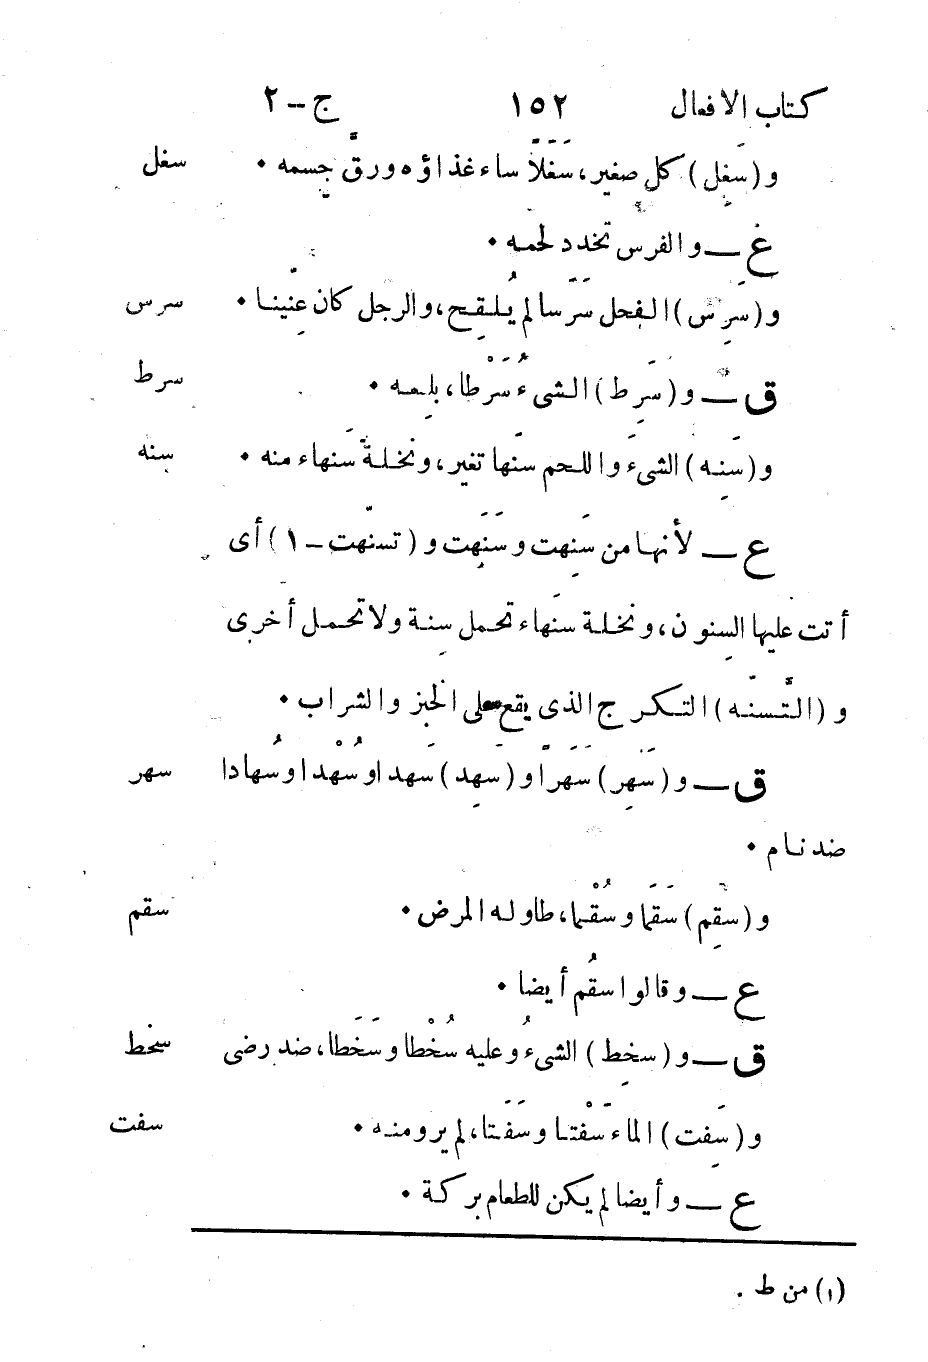 كتاب الافعال ١٥٢ ج – ٢
و (سَغِل) كل صغير، سَغَلًا ساء غذاؤه ورقَّ جسمه • سغل
غ — والفرس تخدد لحمه •
و (سرِس) الفحل سَرَسا لم يُلقِح، والرجل كان عِنّينا • سرس
ق — و (سَرِط) الشىءُ سَرْطا، بلعه • سرط
و (سَنِه) الشىء واللحم سنَها تغير، ونخلة سَنهاء منه • سنه
ع — لأنها من سَنِهت وسَنَهت و (تسنّهت – ١) أى
أتت عليها السِنون، ونخلة سنَهاء تحمل سِنة ولا تحمل أخرى
و (التَّسنّه) التكرج الذى يقع على الخبز والشراب •
ق — و (سَهِر) سَهَرًا و (سَهِد) سَهَدا وسُهْدا وسُهادا سهر
ضد نام •
و (سقِم) سَقَما وسُقْما، طاوله المرض • سقم
ع — وقالوا سقُم أيضا •
ق — و (سخِط) الشىءُ وعليه سُخْطا وسَخَطا، ضد رضى سخط
و (سَفِت) الماء سَفْتا وسَفَتا، لم يرو منه • سفت
ع — وأيضا لم يكن للطعام بركة •
(١) من ط .